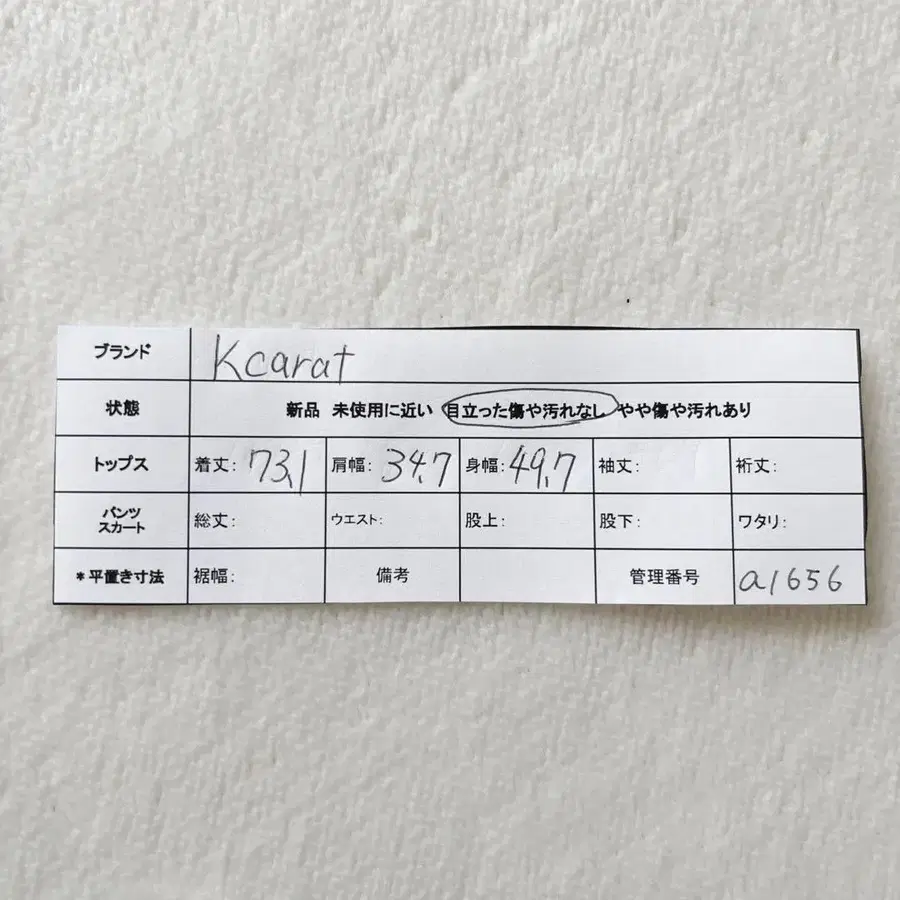 ブランド Kcarat
状態 新品 未使用に近い 目立った傷や汚れなし やや傷や汚れあり
トップス 着丈: 73,1 肩幅: 34,7 身幅: 49,7 袖丈: 裄丈:
パンツ
スカート 総丈: ウエスト: 股上: 股下: ワタリ:
*平置き寸法 裾幅: 備考 管理番号 a1656